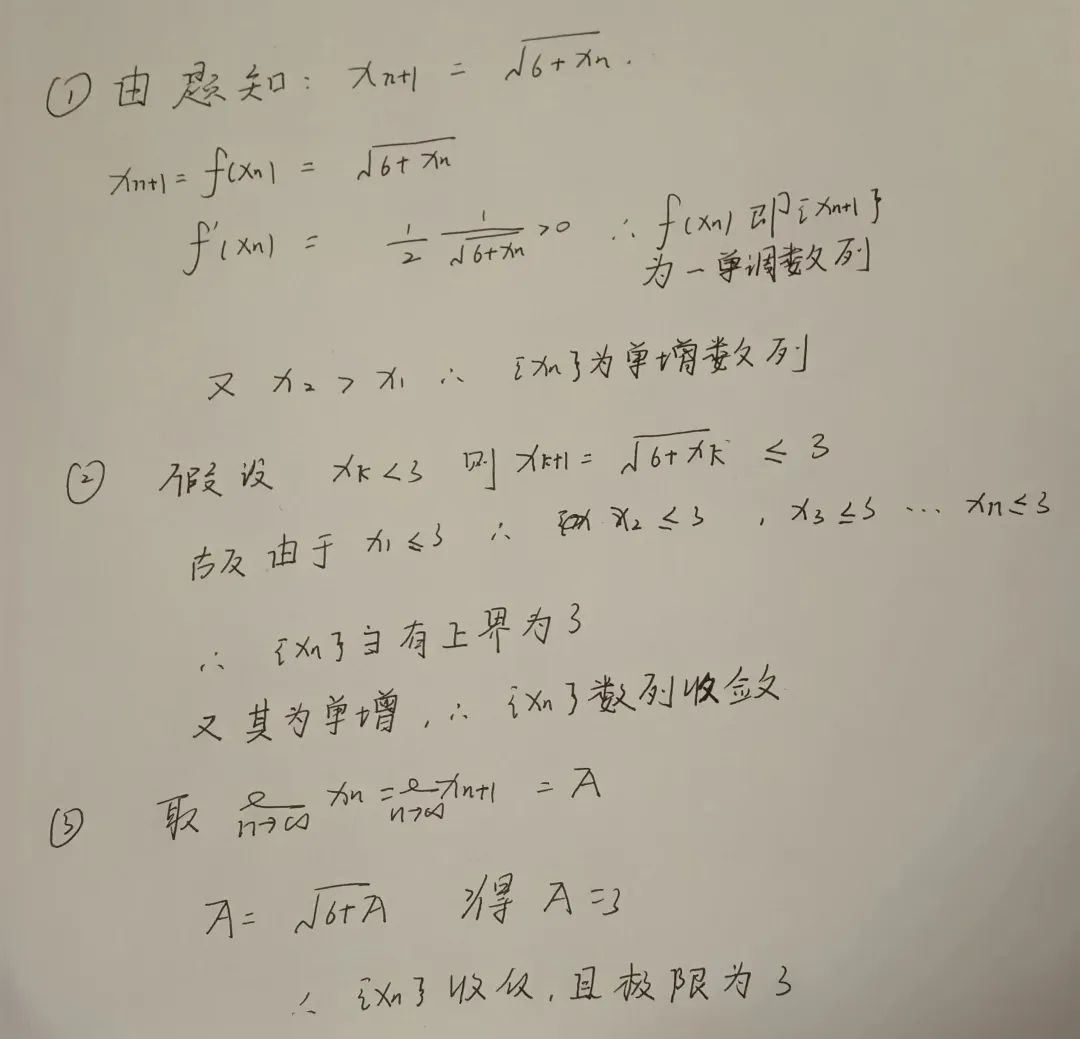 ① 由题知: xn+1 = √6+xn.
xn+1 = f(xn) = √6+xn
f'(xn) = 1/2 1/√6+xn >0 ∴ f(xn) 即{xn+1}
为一单调数列
又 x2 > x1 ∴ {xn}为单增数列
② 假设 xk<3 则 xk+1 = √6+xk ≤ 3
故由于 x1≤3 ∴ x2≤3, x3≤3 … xn≤3
∴ {xn} 有上界为3
又其为单增, ∴ {xn}数列收敛
③ 取 n→∞ xn = n→∞ xn+1 = A
A = √6+A 得 A=3
∴ {xn}收敛, 且极限为3